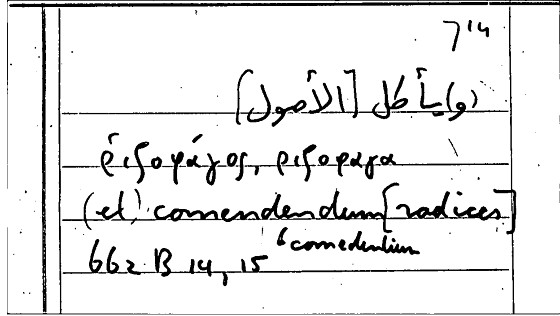 714
(و) يأكل [الأصول]
ῥιζοφάγος, ριζοφαγα
(et) comendendum [radices]
662 B 14, 15 6 comedentium